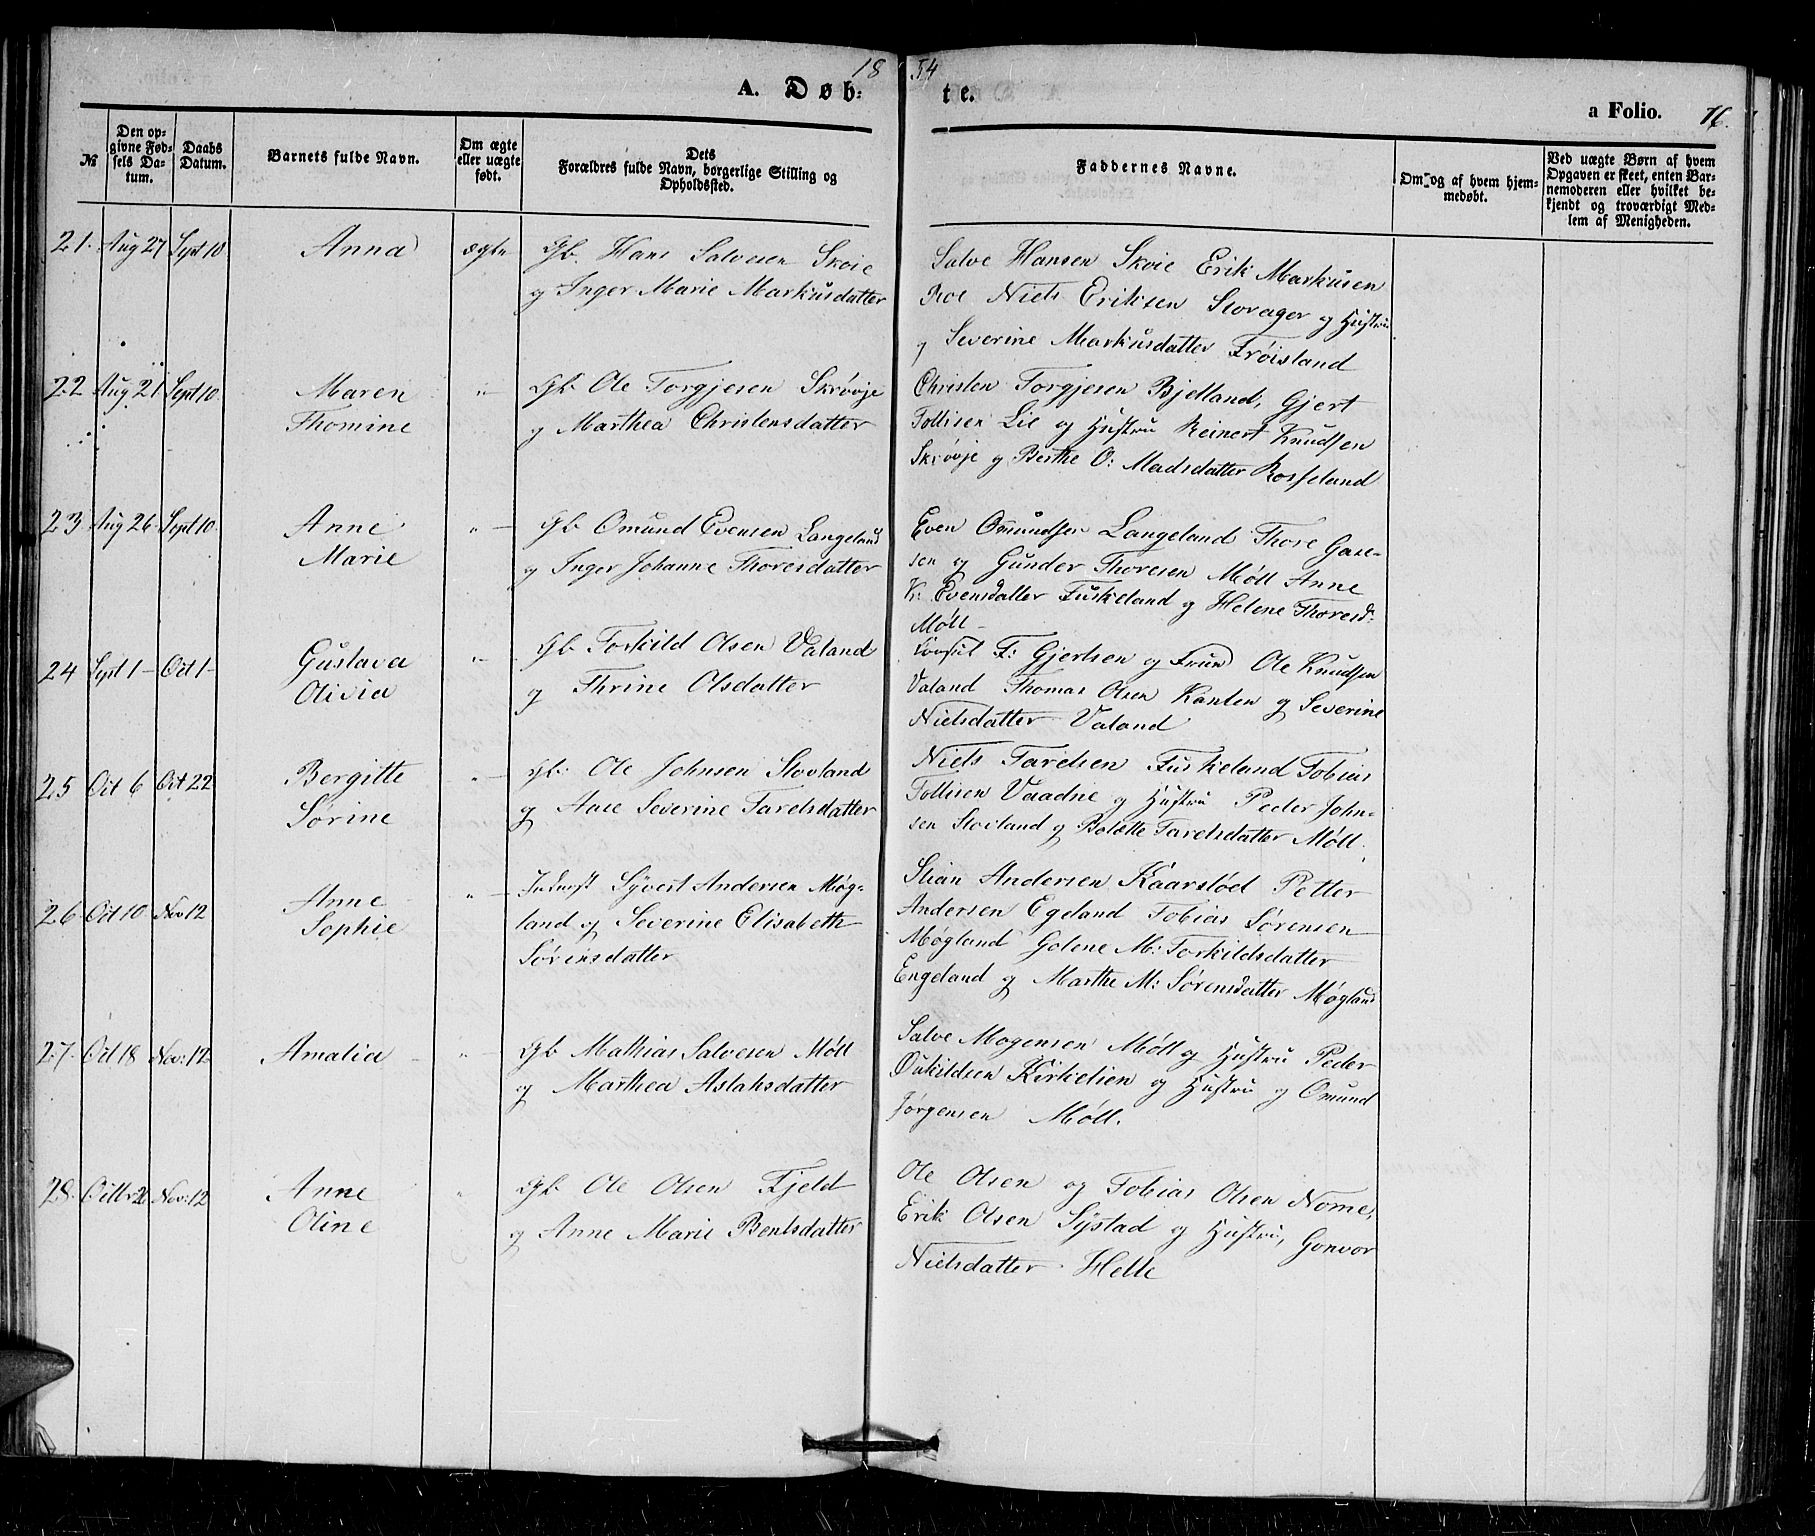 1854
A. Døbte.
a Folio.
№
Den opgivne Fødsels Datum.
Daabs Datum.
Barnets fulde Navn.
Om ægte eller uægte født.
Dets Forældres fulde Navn, borgerlige Stilling og Opholdssted.
Faddernes Navne.
Om og af hvem hjemmedøbt.
Ved uægte Børn af hvem Opgaven er skeet, enten Barnemoderen eller hvilket bekjendt og troværdigt Medlem af Menigheden.
21. Aug 27 Sept 10 Anna ægte
Gb. Hans Salvesen Skoie
og Inger Marie Markusdatter
Salve Hansen Skoie Erik Markusen
Roe Niels Eriksen Storager og Hustru
og Severine Markusdatter Frøisland
22 Aug 21 Sept 10 Maren
Thomine
"
Gb. Ole Torgjesen Skrøvje
og Marthea Christensdatter
Christen Torgjesen Bjelland, Gjert
Tollisen Lie og Hustru Reinert Knudsen
Skrøvje og Berthe O: Madsdatter Rosseland
23. Aug 26 Sept 10 Anne
Marie
"
Gb. Omund Evensen Langeland
og Inger Johanne Thoresdatter
Even Omundsen Langeland Thore
sen og Gunder Thoresen Møll Anne
K: Evensdatter Fuskeland og Helene Thoresd:
Møll
24 Sept 1 - Oct 1 - Gustava
Olivia
"
Gb. Torkild Olsen Valand
og Thrine Olsdatter
Consul F: Gjertsen og Frue Ole Knudsen
Valand Thomas Olsen Kanten og Severine
Nielsdatter Valand
25 Oct 6 Oct 22 Bergitte
Sørine
"
Gb: Ole Johnsen Stovland
og Aase Severine Tarelsdatter
Niels Tarelsen Fuskeland Tobias
Tollisen Vaadne og Hustru Peder John-
sen Stoiland og Bolette Tarelsdatter Møll.
26 Oct 10 Nov 12 Anne
Sophie
"
Syvert Andersen Møg-
land og Severine Elisabeth
Sørensdatter
Stian Andersen Kaarstød Petter
Andersen Egeland Tobias Sørensen
Møgland Golene M: Torkildsdatter
Engeland og Marthe M: Sørensdatter Møgland
27. Oct 18 Nov: 12 Amalia "
Gb Mathias Salvesen Møll
og Marthea Aslaksdatter
Salve Mogensen Møll og Hustru Peder
Oukildsen Kirkelien og Hustru og Omund
Jørgensen Møll.
28. Octbr 20 Nov: 12 Anne
Oline
"
Gb. Ole Olsen Fjeld
og Anne Marie Bentsdatter
Ole Olsen og Tobias Olsen Nome,
Erik Olsen Systad og Hustru, Gonvor
Nielsdatter Helle